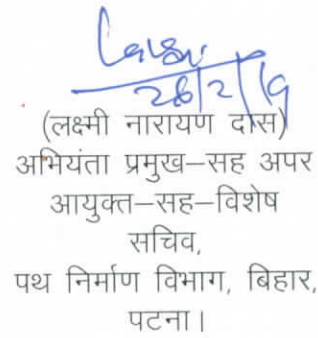 28/2/19
(लक्ष्मी नारायण दास)
अभियंता प्रमुख–सह अपर
आयुक्त–सह–विशेष
सचिव,
पथ निर्माण विभाग, बिहार,
पटना।